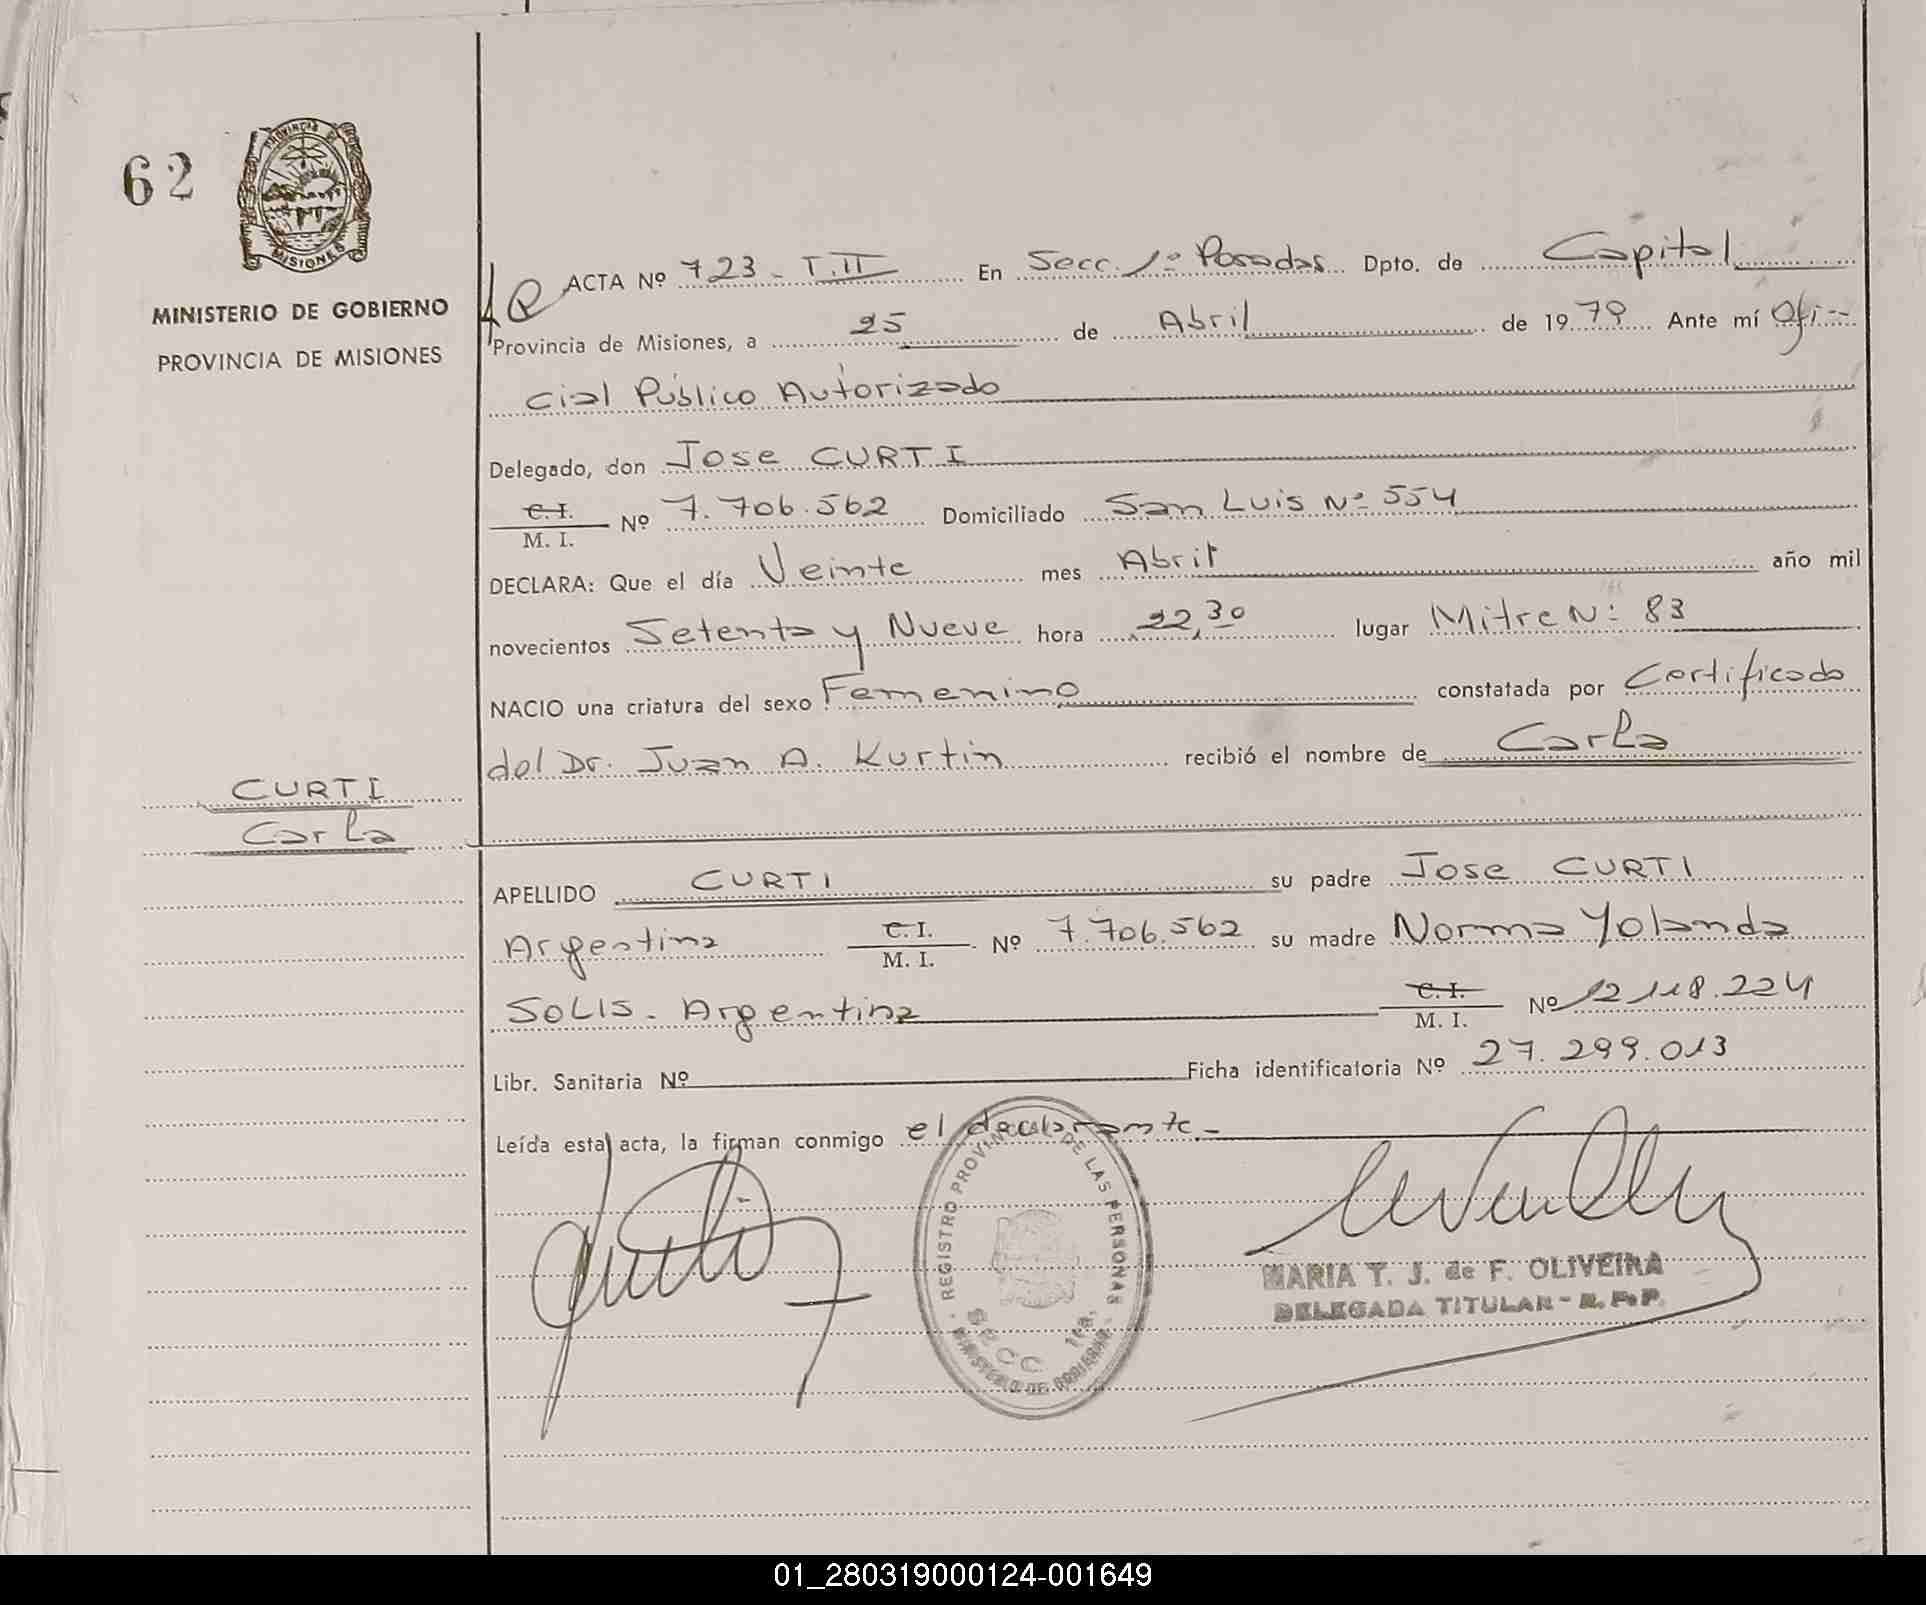 62
PROVINCIA DE
MISIONES
MINISTERIO DE GOBIERNO
PROVINCIA DE MISIONES
ACTA Nº 723 - T.II En Secc. 1º Posadas Dpto. de Capital
Provincia de Misiones, a 25 de Abril de 1979 Ante mí Ofi-
cial Público Autorizado
Delegado, don Jose CURTI
C. I.
M. I. Nº 7.706.562 Domiciliado San Luis Nº 554
DECLARA: Que el día Veinte mes Abril año mil
novecientos Setenta y Nueve hora 22,30 lugar Mitre Nº 83
NACIO una criatura del sexo Femenino constatada por Certificado
del Dr. Juan A. Kurtin recibió el nombre de Carla
CURTI
Carla
APELLIDO CURTI su padre Jose CURTI
Argentina C. I.
M. I. Nº 7.706.562 su madre Norma Yolanda
SOLIS - Argentina C. I.
M. I. Nº 12118.224
Libr. Sanitaria Nº Ficha identificatoria Nº 27.299.013
Leída esta acta, la firman conmigo el declarante.-
REGISTRO PROVINCIAL DE LAS PERSONAS
SECC. 1ra.
MINISTERIO DE GOBIERNO
MARIA T. J. de F. OLIVEIRA
DELEGADA TITULAR - R. P. P.
01_280319000124-001649